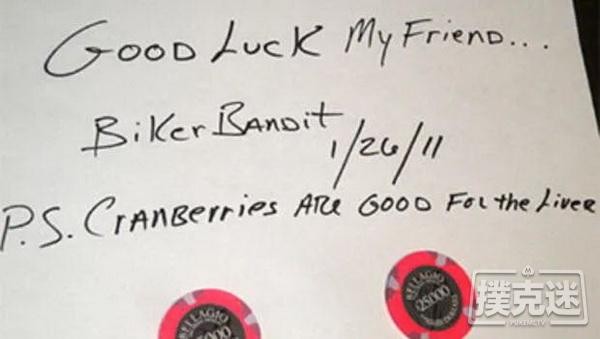 GOOD LUCK My FRiEND...
BiKER BANDit
1/26/11
P.S. CRANBERRiES ARE GOOD FOR the LiveR
BELLAGIO
$25000
BELLAGIO
撲克迷
POKEMI.TV